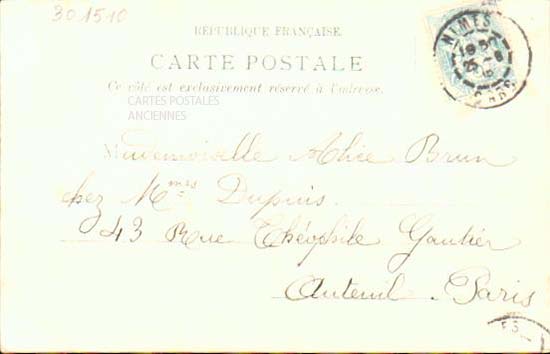 301510
RÉPUBLIQUE FRANÇAISE
CARTE POSTALE
Ce côté est exclusivement réservé à l'adresse.
CARTES POSTALES
ANCIENNES
NIMES
GARE
Mademoiselle Alice Brun
chez Mmes Dupuis
43 Rue Théophile Gautier
Auteuil. Paris